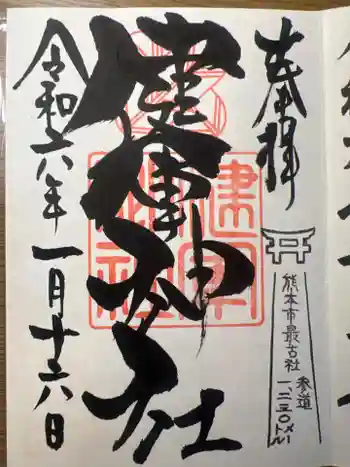 奉拝
熊本市最古社
参道
一、二三〇メートル
健軍神社
健軍
神社
令和六年一月十六日